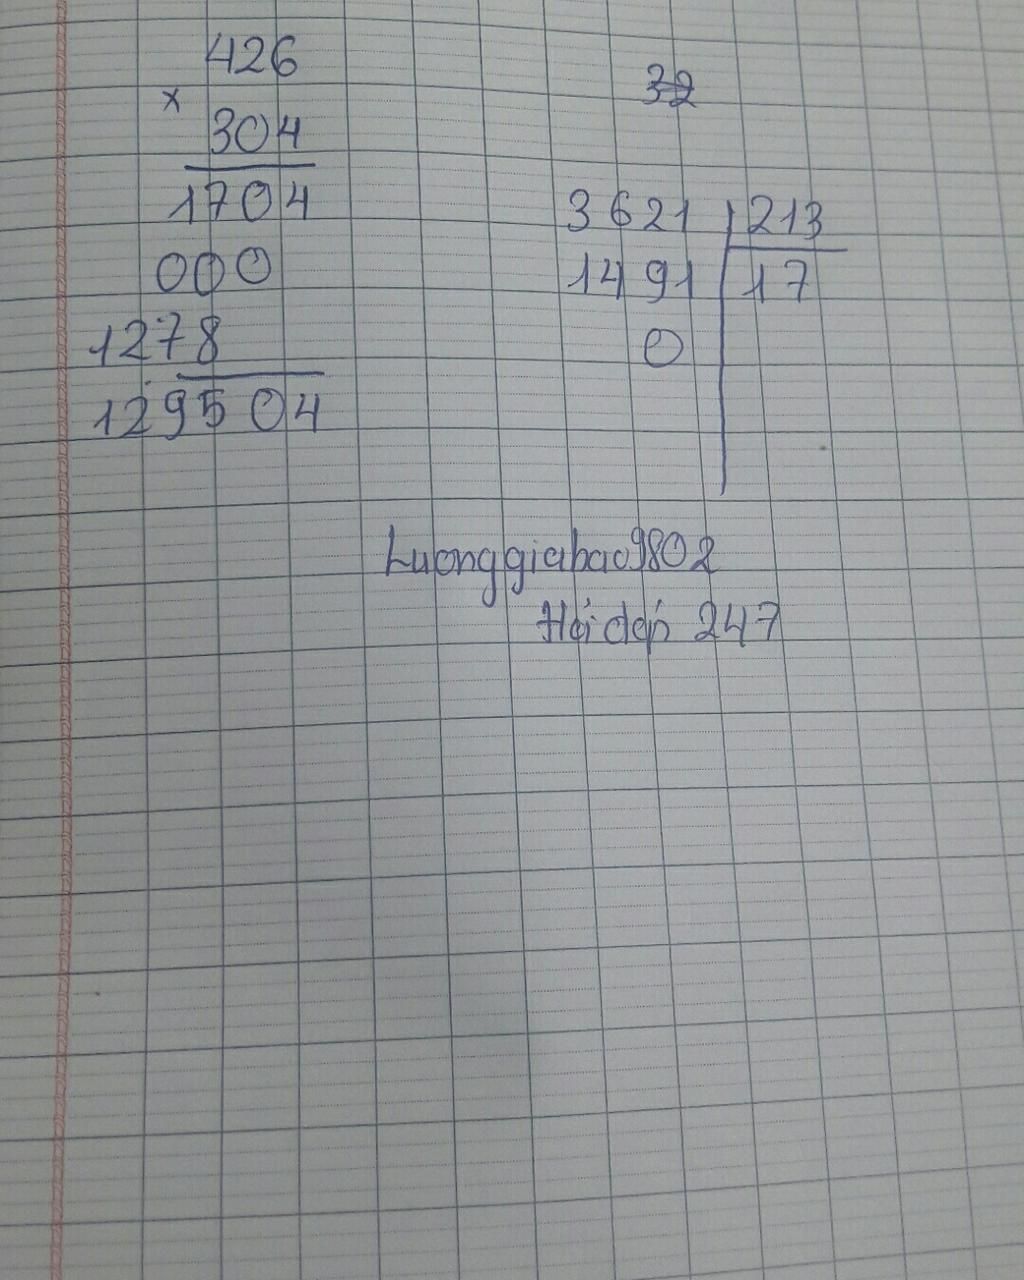 426
×
304
1704
000
1278
129504
32
3621 213
1491 17
0
Luonggiabao9802
Hỏi đáp 247